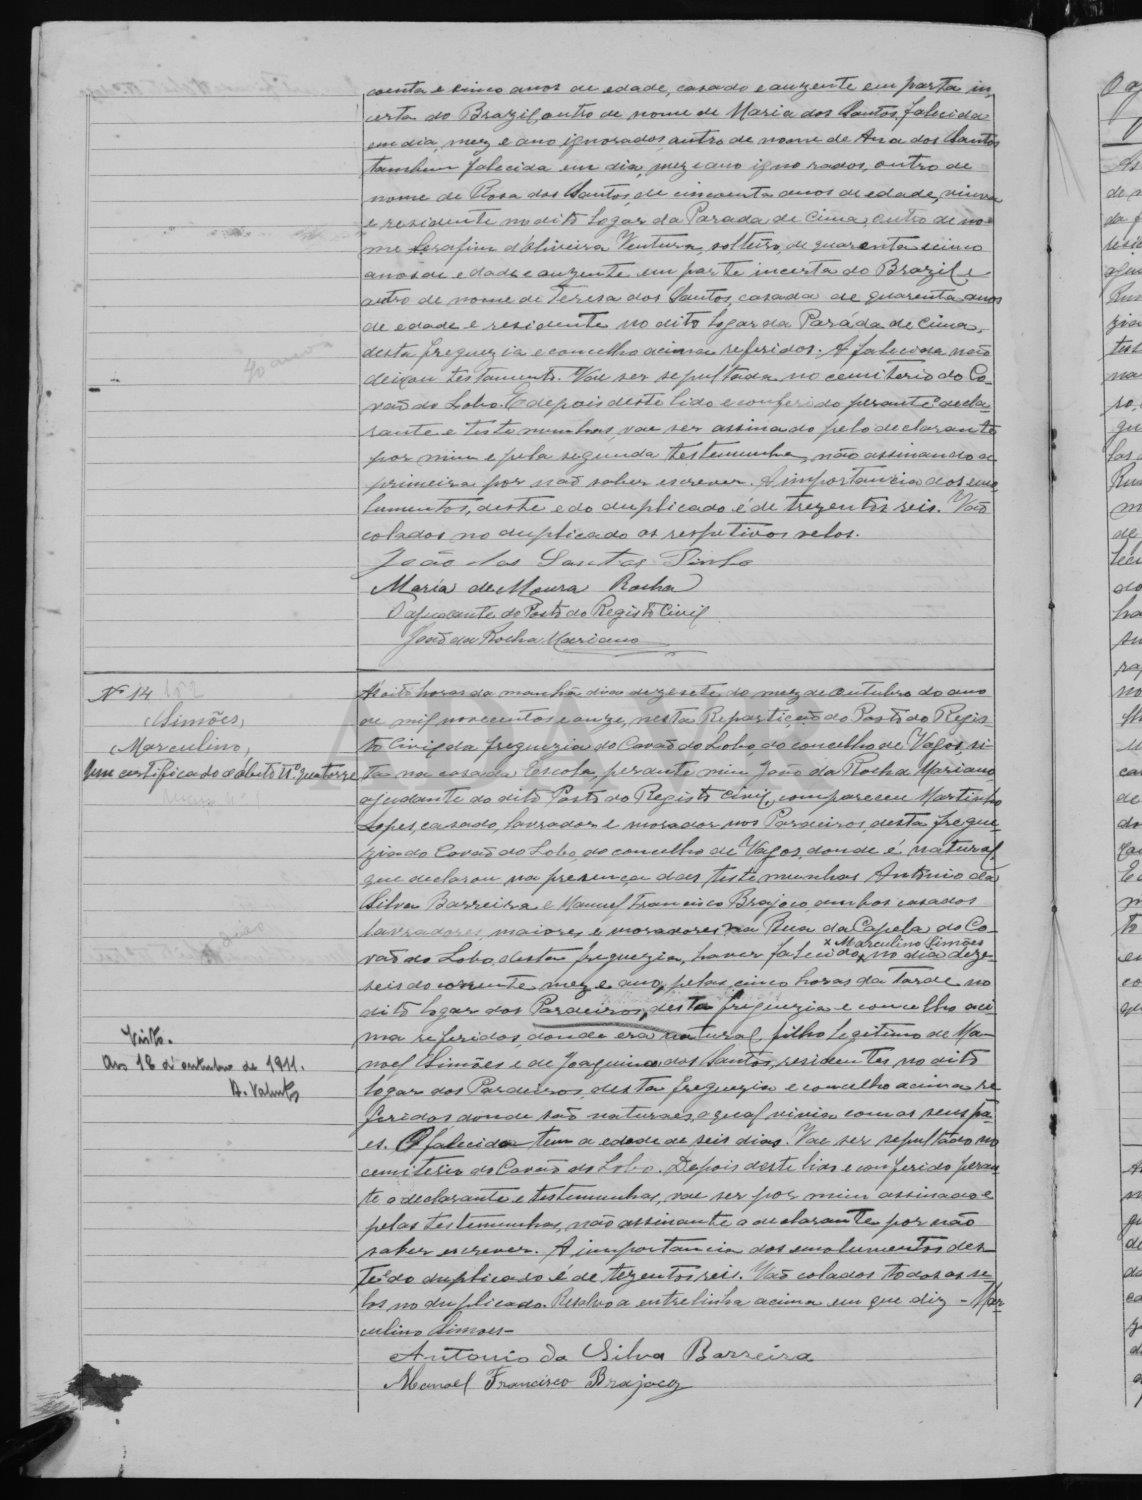 coenta e cinco anos de edade, casado e auzente em parte in-
certa do Brazil, outro de nome de Maria dos Santos, falecida
em dia, mez e ano ignorados, outro de nome de Ana dos Santos
tambem falecida em dia, mez e ano ignorados, outro de
nome de Rosa dos Santos, de cincoenta anos de edade, viuva
e residente no dito logar da Parada de Cima, outro de no-
me Serafim d'Oliveira Ventura, solteiro, de quarenta e cinco
anos de edade e auzente em parte incerta do Brazil e
outro de nome de Teresa dos Santos, casada de quarenta anos
de edade e residente no dito logar da Paráda de Cima,
desta freguezia e concelho acima referidos. A falecida não
deixou testamento. Vae ser sepultada no cemiterio do Co-
vão do Lobo. E depois deste lido e conferido perante o decla-
rante e testemunhas, vae ser assinado pelo declarante
por mim e pela segunda testemunha, não assinando a
primeira por não saber escrever. A importancia dos emo-
lumentos, deste e do duplicado é de trezentos reis. Vão
colados no duplicado os respetivos selos.
João dos Santos Pinho
Maria de Moura Rocha
O ajudante do Posto do Registo Civil
João da Rocha Mariano
Nº 14 102
(Simões,
(Marculino,
Um certificado d'obito Nº quatorze
40 anos
Visto.
Aos 18 d'outubro de 1911.
Ás oito horas da manhã dia dezesete do mez de outubro do ano
de mil novecentos e onze, nesta Repartição do Posto do Regis-
to Civil da freguezia do Covão do Lobo, do concelho de Vagos, si-
ta na casa da Escola, perante mim João da Rocha Mariano,
ajudante do dito Posto do Registo Civil, compareceu Martinho
Lopes, casado, lavrador e morador nos Pardeiros, desta fregue-
zia do Covão do Lobo, do concelho de Vagos, donde é natural,
que declarou na presença das testemunhas Antonio da
Silva Barreira e Manuel Francisco Brajoco, ambos casados
lavradores, maiores e moradores na Rua da Capela do Co-
x Marculino Simões
vão do Lobo, desta freguezia, haver falecido x no dia deze-
seis do corrente mez e ano, pelas cinco horas da tarde no
dito logar dos Pardeiros, desta freguezia e concelho aci-
ma referidos donde era natural, filho legitimo de Ma-
noel Simões e de Joaquina dos Santos, residentes no dito
logar dos Pardeiros, desta freguezia e concelho acima re-
feridos donde são naturaes, o qual vivia com os seus pa-
es. O falecido tem a edade de seis dias. Vae ser sepultado no
cemiterio do Covão do Lobo. Depois deste lido e conferido peran-
te o declarante e testemunhas, vae ser por mim assinado e
pelas testemunhas, não assinante o declarante por não
saber escrever. A importancia dos emolumentos des-
te e do duplicado é de tezentos reis. Vão colados todos os se-
los no duplicado. Resalvo a entrelinha acima em que diz - Mar-
culino Simoes -
Antonio da Silva Barreira
Manoel Francisco Brajoco
ADAVR